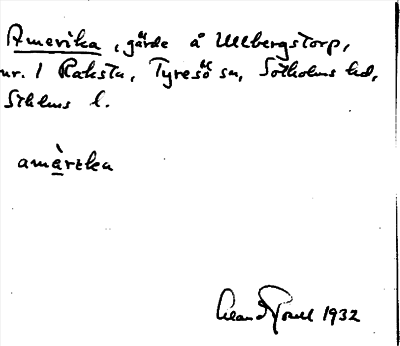 Amerika, gärde å Ullbergstorp,
nr. 1 Raksta, Tyresö sn, Sotholms hd,
Sthlms l.
amàrzka
1932